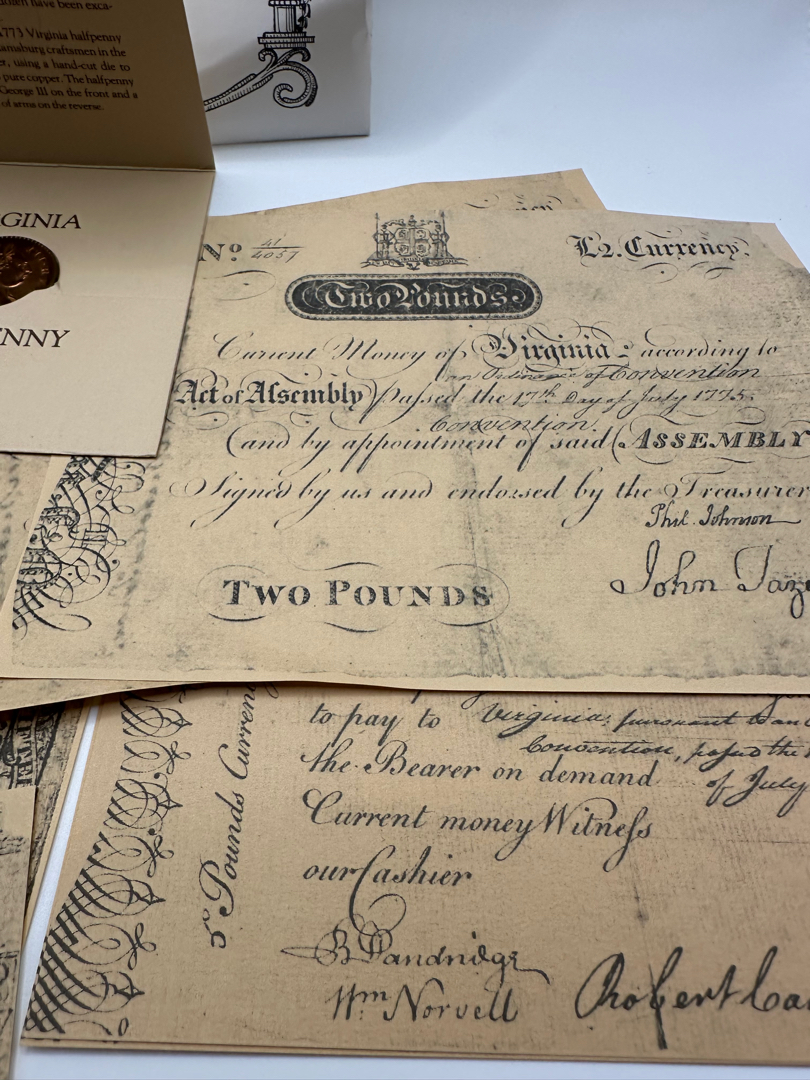 have been exca-
1773 Virginia halfpenny
craftsmen in the
using a hand-cut die to
pure copper. The halfpenny
George III on the front and a
of arms on the reverse.
GINIA
NNY
No 41/4057
L2. Currency.
Two Pounds.
Current Money of Virginia according to
an Ordinance of Convention
Act of Assembly passed the 17th Day of July 1775.
Convention.
(and by appointment of said (ASSEMBLY
Signed by us and endorsed by the Treasurer
Phil. Johnson
John Taz
TWO POUNDS
5 Pounds Curren
to pay to Virginia, pursuant to an
Convention, passed the
the Bearer on demand of July
Current money Witness
our Cashier
B Dandridge
Wm Norvell
Robert Ca